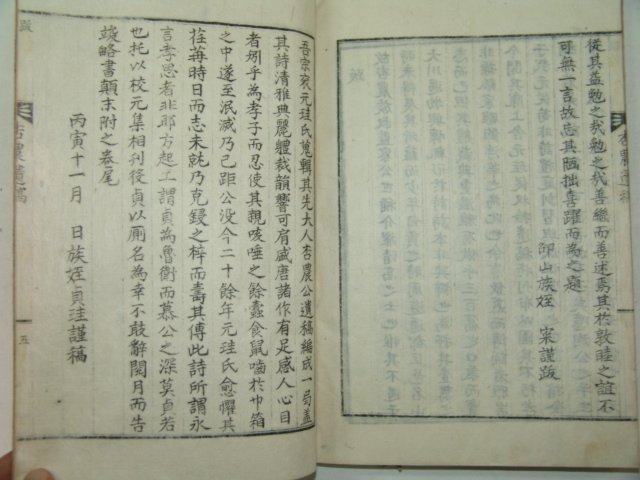 從其益勉之哉勉之哉善繼而善述焉其於敦睦之誼不
可無一言故忘其膩拙喜躍而為之題
卬山族姪 宷謹跋
杏農遺稿
吾宗宷元珪氏蒐輯其先大人杏農公遺稿編成一局盖
其詩清雅典麗體裁韻響可肩盛唐諸作有足感人心目
者矧乎為孝子而忍使其親咳唾之餘蠹食鼠嚙於巾箱
之中遂至泯滅乃已距公没今二十餘年元珪氏愈懼其
荏苒時日而志未就乃克鋟之梓而壽其傳此詩所謂永
言孝思者非耶方起工謂貞為魯衡而慕公之深莫貞若
也托以校元集相刋後貞以厠名為幸不鼓辭閱月而告
竣略書顛末附之卷尾
丙寅十一月 日族姪貞珪謹稿
跋
杏農遺稿
五